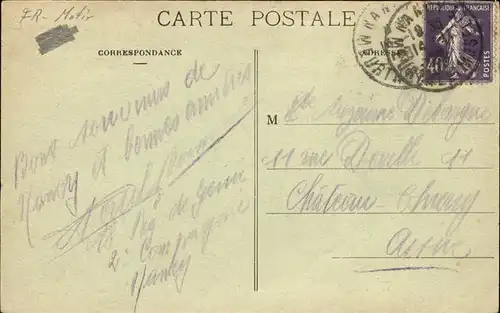 FR-Motiv
CARTE POSTALE
CORRESPONDANCE
ADRESSE
REPUBLIQUE FRANÇAISE
40c
POSTES
Bons souvenirs de
Nancy et bonnes amitiés
Reg de Génie
2e Compagnie
Nancy
M
elle Suzanne
11 rue 11
Château-Thierry
Aisne